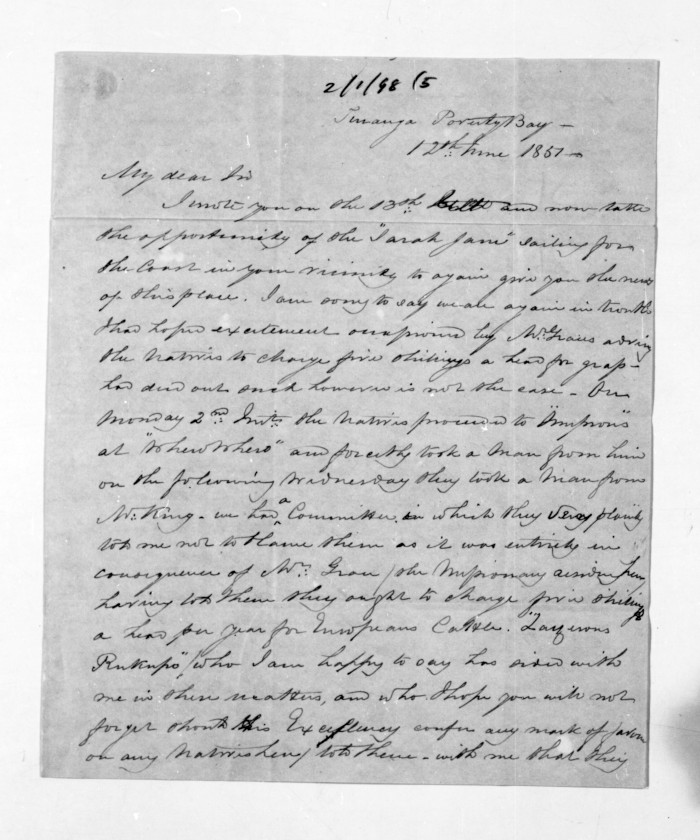 2/1/98 (5
Turanga Poverty Bay -
12th June 1851 -
My dear Sir
I wrote you on the 13th and now take
the opportunity of the "Sarah Jane" sailing for
the Coast in your vicinity to again give you the news
of this place. I am sorry to say we are again in trouble
I had hoped excitement occasioned by Mr. Graces advising
the Natives to charge five shillings a head for grass -
had died out such however is not the case - On
Monday 2nd Inst. the Natives proceeded to "Simpsons"
at "Wherowhero" and forcibly took a Man from him
on the following Wednesday they took a Man from
Mr. King - we had a Committee in which they very plainly
told me not to blame them as it was entirely in
consequence of Mr. Grace (the Missionary residing here
having told them they ought to charge five shillings
a head per year for Europeans Cattle. "Lazerous
Rukupo" (who I am happy to say has sided with
me in these matters, and who I hope you will not
forget should His Excellency confer any mark of favour
on any Natives here) told them - with me that they